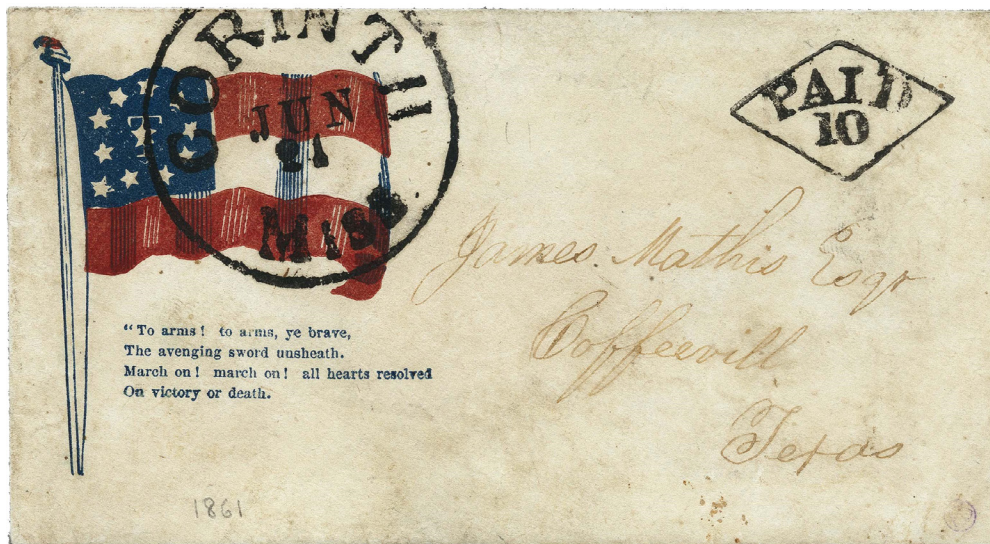 CORINTH
JUN
21
MISS
PAID
10
James Mathis Esqr
Coffeevill
Texas
“To arms! to arms, ye brave,
The avenging sword unsheath.
March on! march on! all hearts resolved
On victory or death.
1861